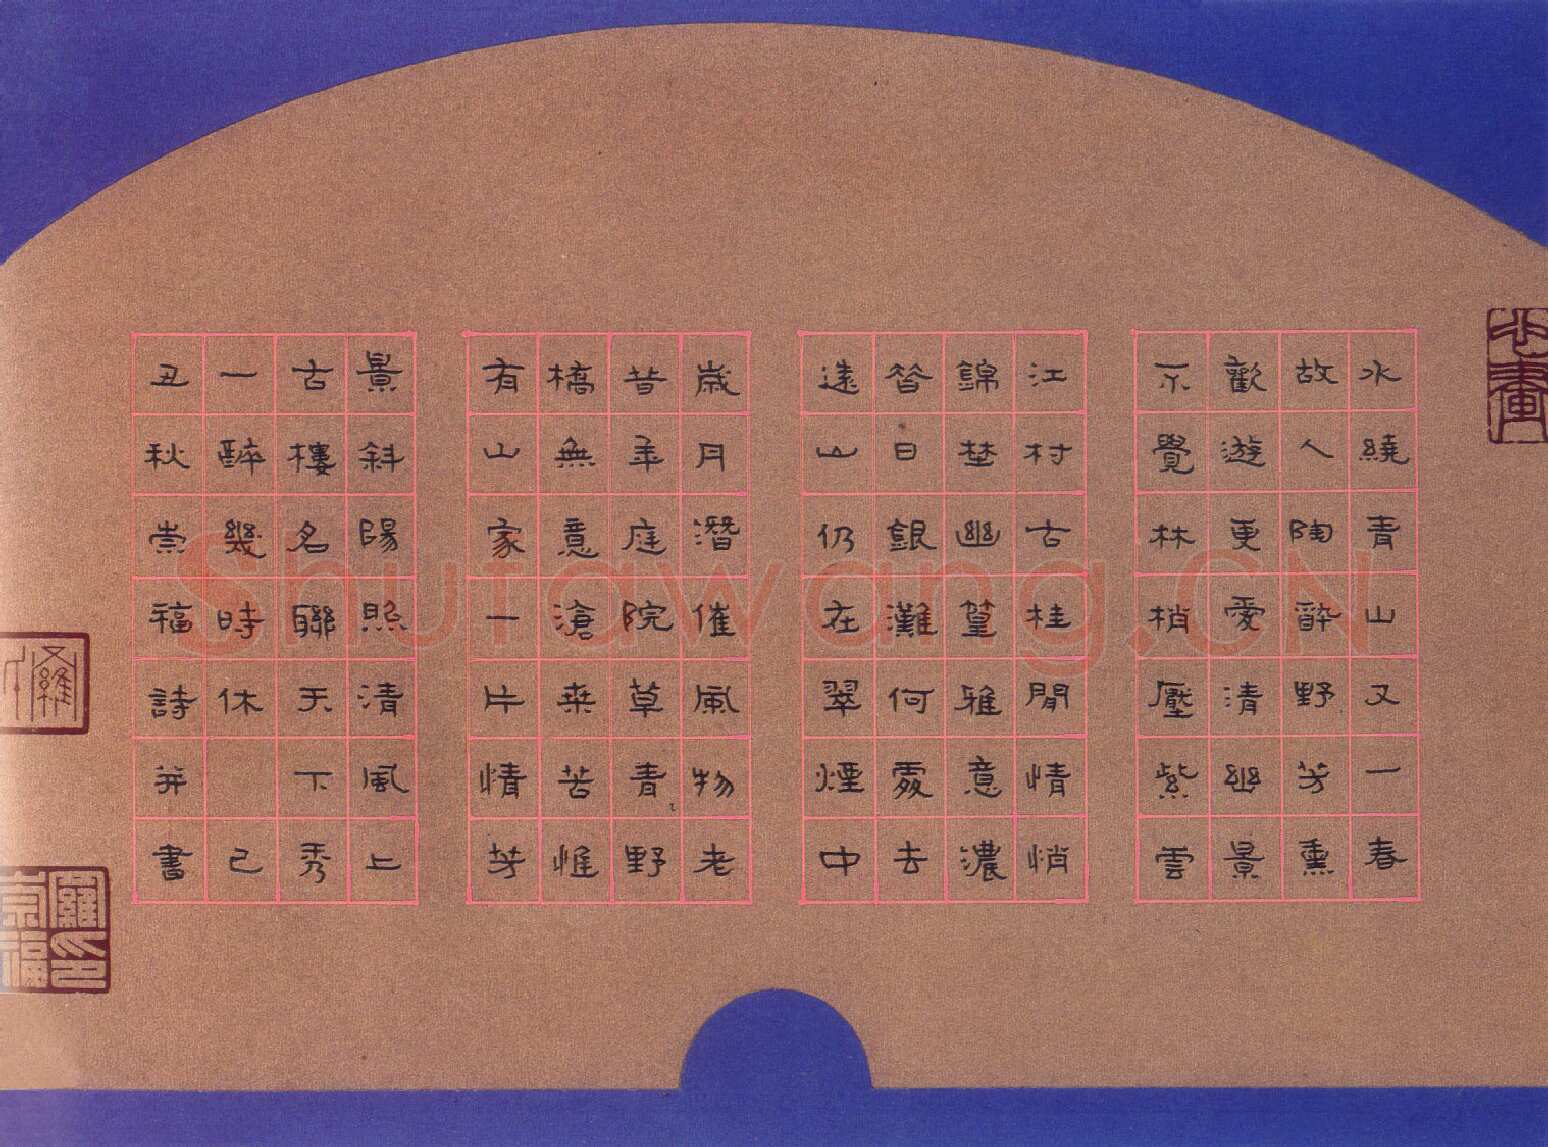 水繞青山又一春
故人陶醉野芳熏
歡遊更愛清幽景
不覺林梢壓紫雲
江村古桂閒情悄
錦埜幽篁雅意濃
昝日銀灘何處去
遠山仍在翠煙中
歲月潛催風物老
昔年庭院草青野
橋無意滄桑苦惟
有山家一片情芳
景斜陽照清風上
古樓名聯天下秀
一醉幾時休 己
丑秋崇福詩并書
Shufawang.CN
羅印崇福